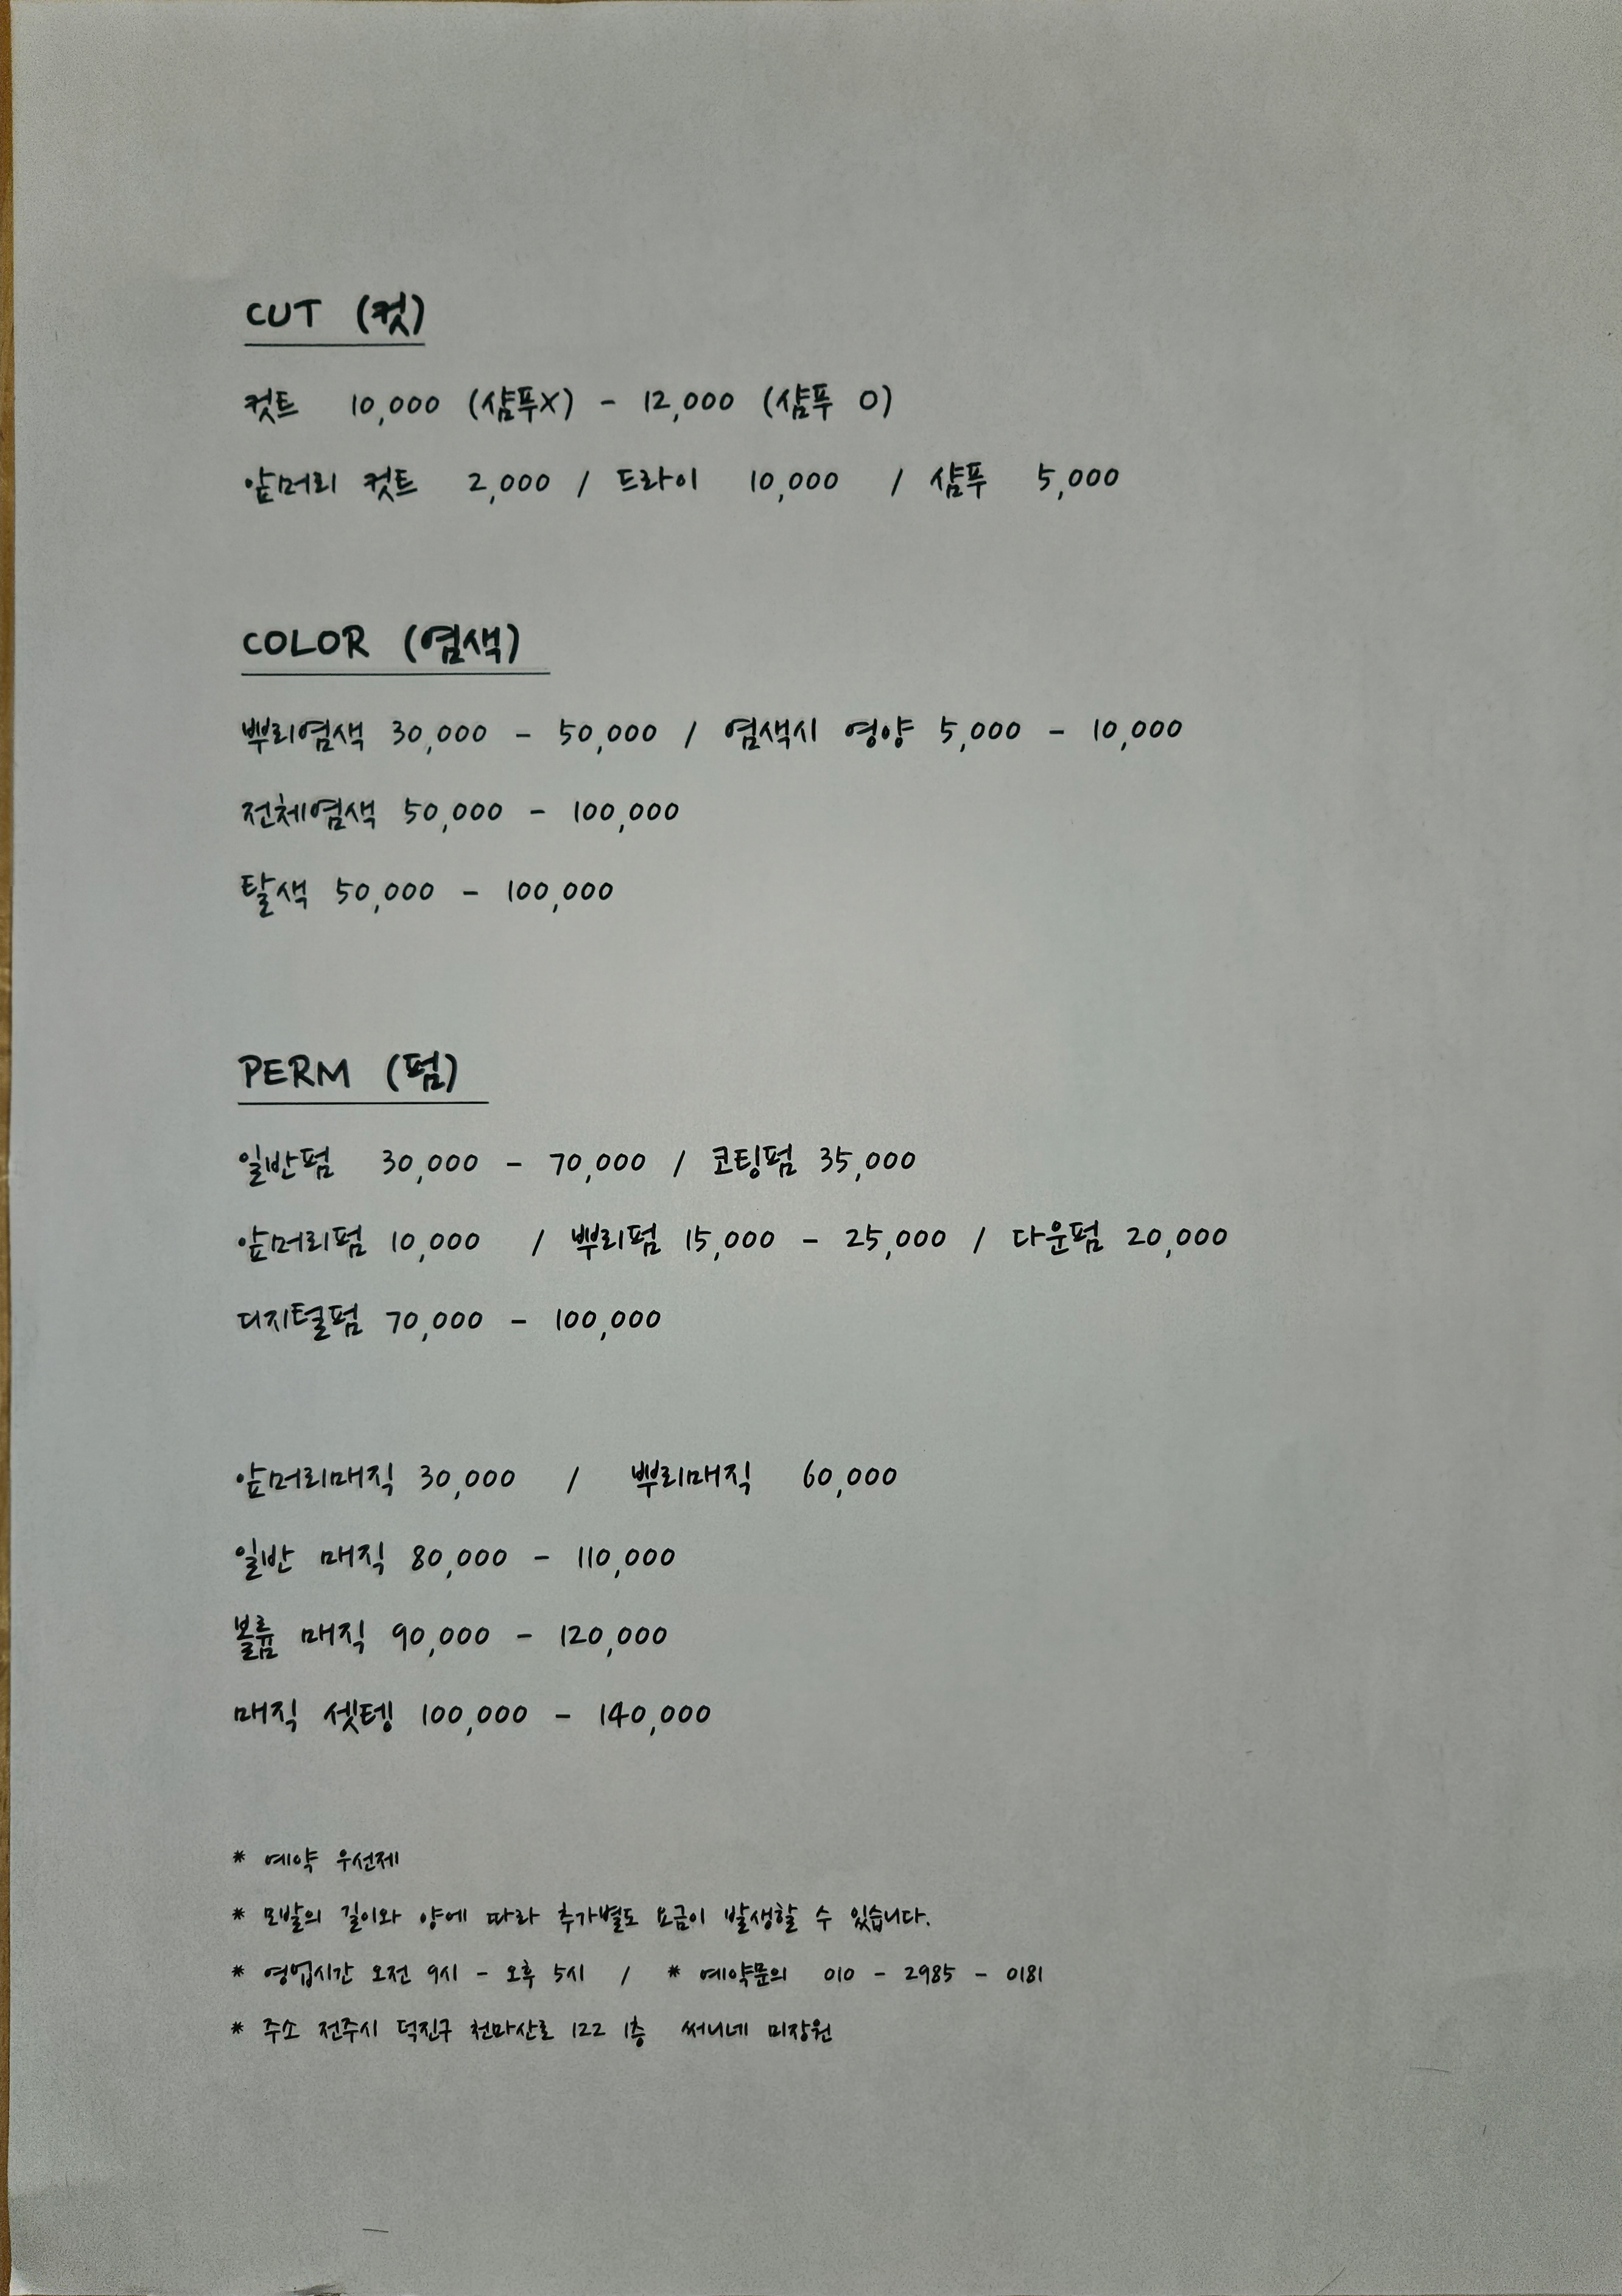 CUT (컷)
컷트 10,000 (샴푸X) - 12,000 (샴푸 O)
앞머리 컷트 2,000 / 드라이 10,000 / 샴푸 5,000
COLOR (염색)
뿌리염색 30,000 - 50,000 / 염색시 영양 5,000 - 10,000
전체염색 50,000 - 100,000
탈색 50,000 - 100,000
PERM (펌)
일반펌 30,000 - 70,000 / 코팅펌 35,000
앞머리펌 10,000 / 뿌리펌 15,000 - 25,000 / 다운펌 20,000
디지털펌 70,000 - 100,000
앞머리매직 30,000 / 뿌리매직 60,000
일반 매직 80,000 - 110,000
볼륨 매직 90,000 - 120,000
매직 셋팅 100,000 - 140,000
* 예약 우선제
* 모발의 길이와 양에 따라 추가별도 요금이 발생할 수 있습니다.
* 영업시간 오전 9시 - 오후 5시 / * 예약문의 010 - 2985 - 0181
* 주소 전주시 덕진구 천마산로 122 1층 써니네 미장원